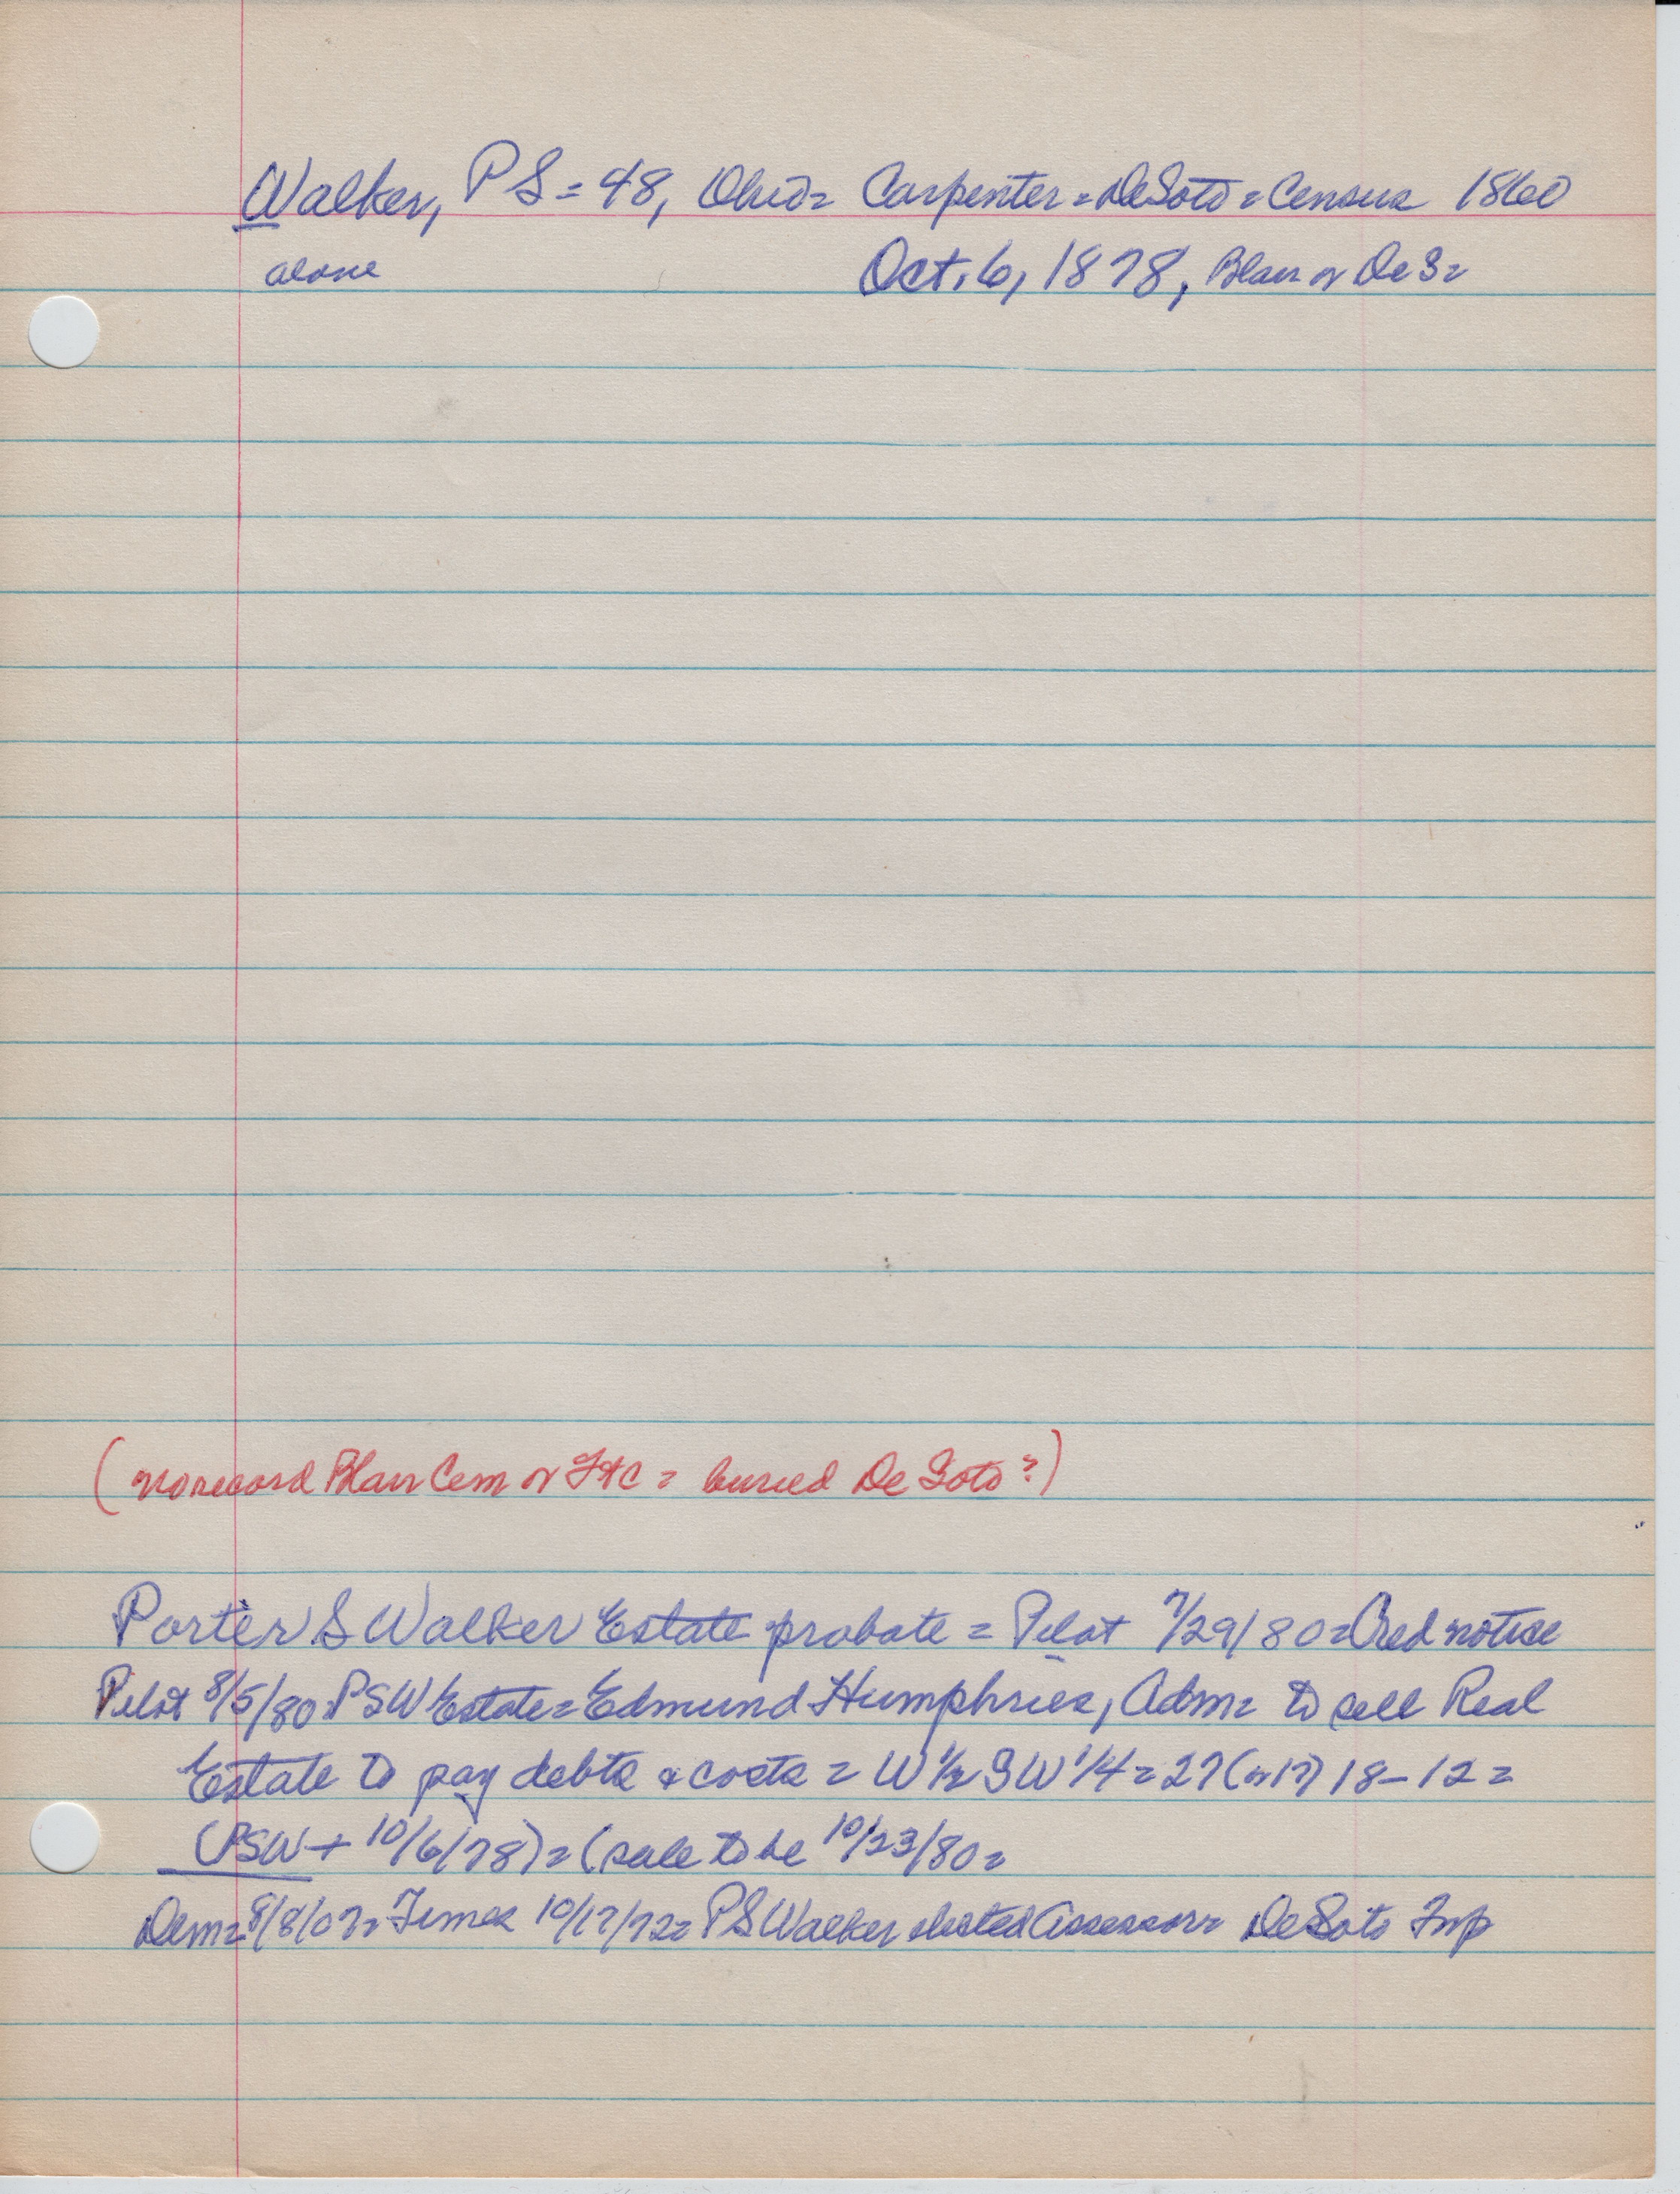 Walker, PS = 48, Ohio = Carpenter = DeSoto = Census 1860
alone Oct. 6, 1878, Blair or De S =
(no record Blair Cem or FtC = buried De Soto?)
Porter S Walker Estate probate = Pilot 7/29/80 = Cred notice
Pilot 8/5/80 PSW Estate = Edmund Humphries, Adm = to sell Real
Estate to pay debts & costs = W 1/2 SW 1/4 = 27 (or 17) 18-12 =
(PSW + 10/6/78) = (sale to be 10/23/80 =
Dem = 8/8/07 = Times 10/17/72 = PS Walker elected Assessor = DeSoto Twp